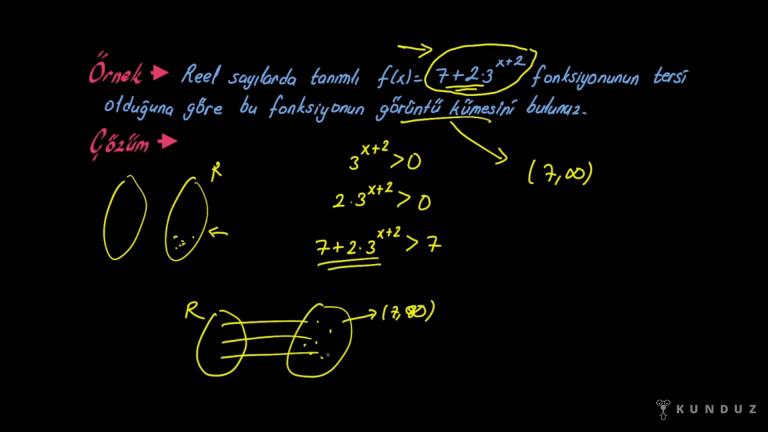 Örnek ➤ Reel sayılarda tanımlı f(x)= 7+2.3^(x+2) fonksiyonunun tersi
olduğuna göre bu fonksiyonun görüntü kümesini bulunuz.
Çözüm ➤
3^(x+2) > 0
(7,∞)
R
2.3^(x+2) > 0
7+2.3^(x+2) > 7
R
(7,∞)
KUNDUZ